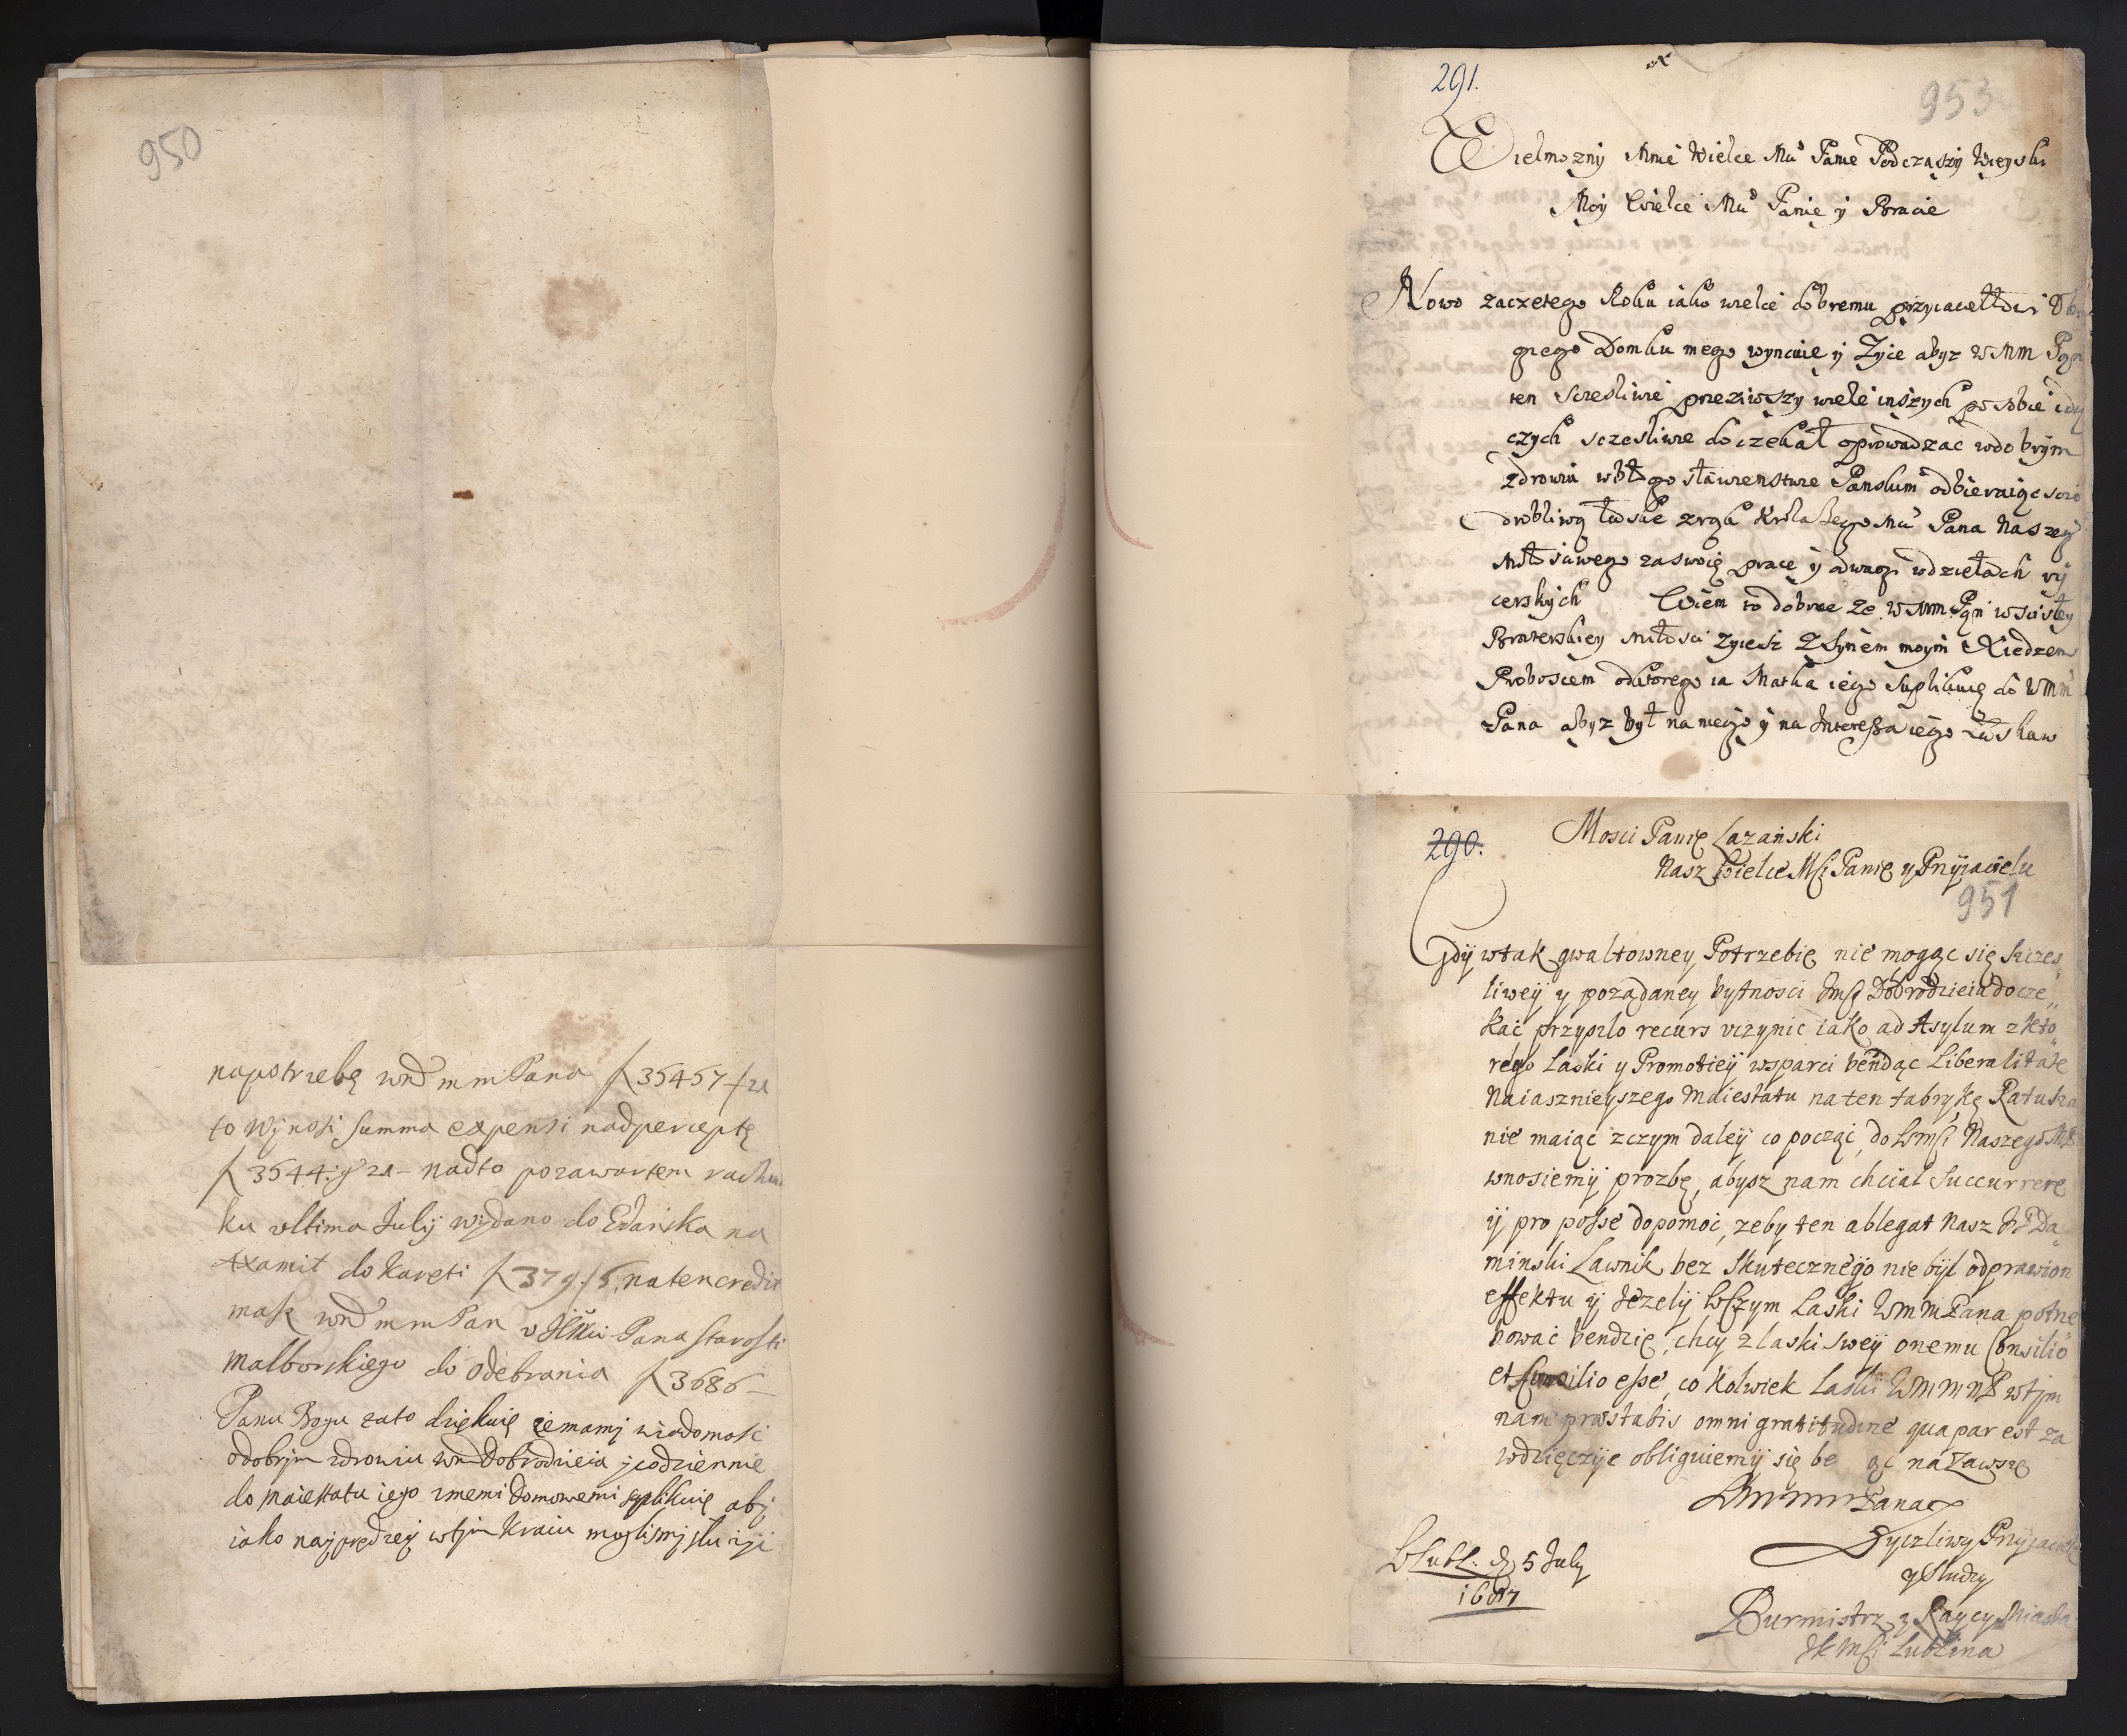 950
napotrzebę wmd m m Pana f 35457 f 21
to wynosi summa expensi nadperceptę
f 3544: g 21 – nadto pozawartem rachun
ku ultima July wydano do Gdańska na
axamit do Kareti f 379. f 5. natencredit
masz wmd m m Pan v Pana starosti
Malborskiego do odebrania f 3686 –
Panu Bogu zato dziękuię że mamy wiadomosc
odobrym zdrowiu wm Dobrodzieia y codziennie
do maiestatu iego zmemi domowemi suplikuię abj
iako najprędzej wtym Kraiu moglismj służyi
291.
953
Wielmozny Mnie Wielce Mu Panie Podczaszy
Moy Wielce Mu Panie y Bracie
Nowo zaczetego Roku iako wielce dobremu przyiacellowi
go Domku mego wynćuie y Zyce abyz w Mm Pan
ten sczesliwie przeziwszy wiele inszych po sobie idą
czych sczesliwie doczekał oprowadzac wdobrym
zdrowiu wbłgosławienstwie Panskim odbieraiąc scio
drobliwą łaskę zrąk Króla Iego Mu Pana Naszego
Młosciwego zaswoię pracę y odwagi wdziełach ry
cerskych Wiem to dobrze ze w mm Pan wscisłey
Braterskiey miłosci zyiesz z synem moym Xiedzem
Proboscem odktorego ia Matka iego suplikuię do WMm
Pana abyz był naniego y na Interessa iego Łaskaw
290.
Mosci Panię Łazański
Nasz Wielce Msći Panię y Przyiacielu
951
Gdÿ wtak gwaltowney Potrzebię nie mogąc się szczes„
liweÿ y poządaney bytnosci Jmsći Dobrodzieia docze„
kać przyszlo recurs vczynic iako ad Asylum z kto„
rego Laski y Promotieÿ wsparci będąc Liberalitate
Naiasznieyszego Maiestatu na ten fabrykę Ratusza
nie maiąc zczym daleÿ co począć, do Wmsći Naszego Msći
wnosiemÿ prozbę, abysz nam chciał succurrere
ÿ pro posse dopomoć, zeby ten ablegat Nasz Da„
minski Ławnik bez skutecznego nie był odprawion
effektu ÿ Jezelÿ Wszym Laski WmmPana potrze„
bować bendzię, chcÿ z laski sweÿ onemu Consilio
et Consilio esse, co kolwiek Laski wtym
nam præstabis omni gratitudine qua par est za
wdzięczÿc obliguiemÿ się będąc na Zawszę
Wmmm Pana
Zyczliwy Przyiaciele
y Sludzy
WLubl: d 5 July
1687
Burmistrz y Raycy Miasta
JKMsći Lublina